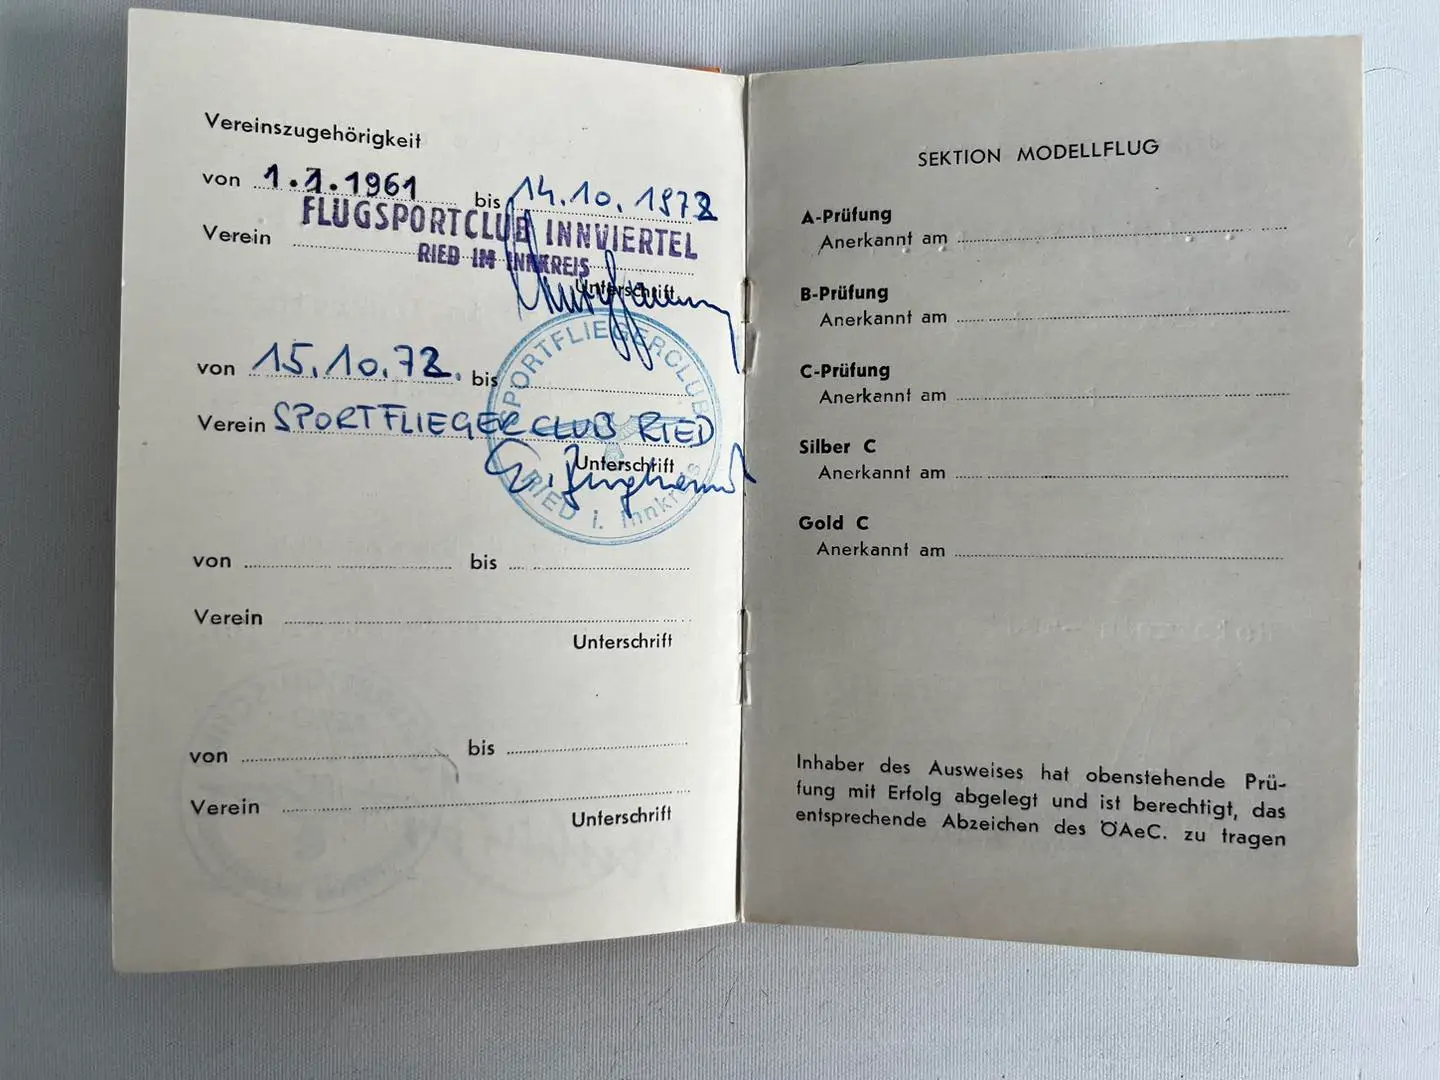 Vereinszugehörigkeit
von 1.1.1961 bis 14.10.1972
Verein FLUGSPORTCLUB INNVIERTEL
RIED IM INNKREIS
Unterschrift
von 15.10.72. bis
Verein SPORTFLIEGERCLUB RIED
Unterschrift
SPORTFLIEGERCLUB
RIED i. Innkreis
von bis
Verein
Unterschrift
von bis
Verein
Unterschrift
SEKTION MODELLFLUG
A-Prüfung
Anerkannt am
B-Prüfung
Anerkannt am
C-Prüfung
Anerkannt am
Silber C
Anerkannt am
Gold C
Anerkannt am
Inhaber des Ausweises hat obenstehende Prü-
fung mit Erfolg abgelegt und ist berechtigt, das
entsprechende Abzeichen des ÖAeC. zu tragen